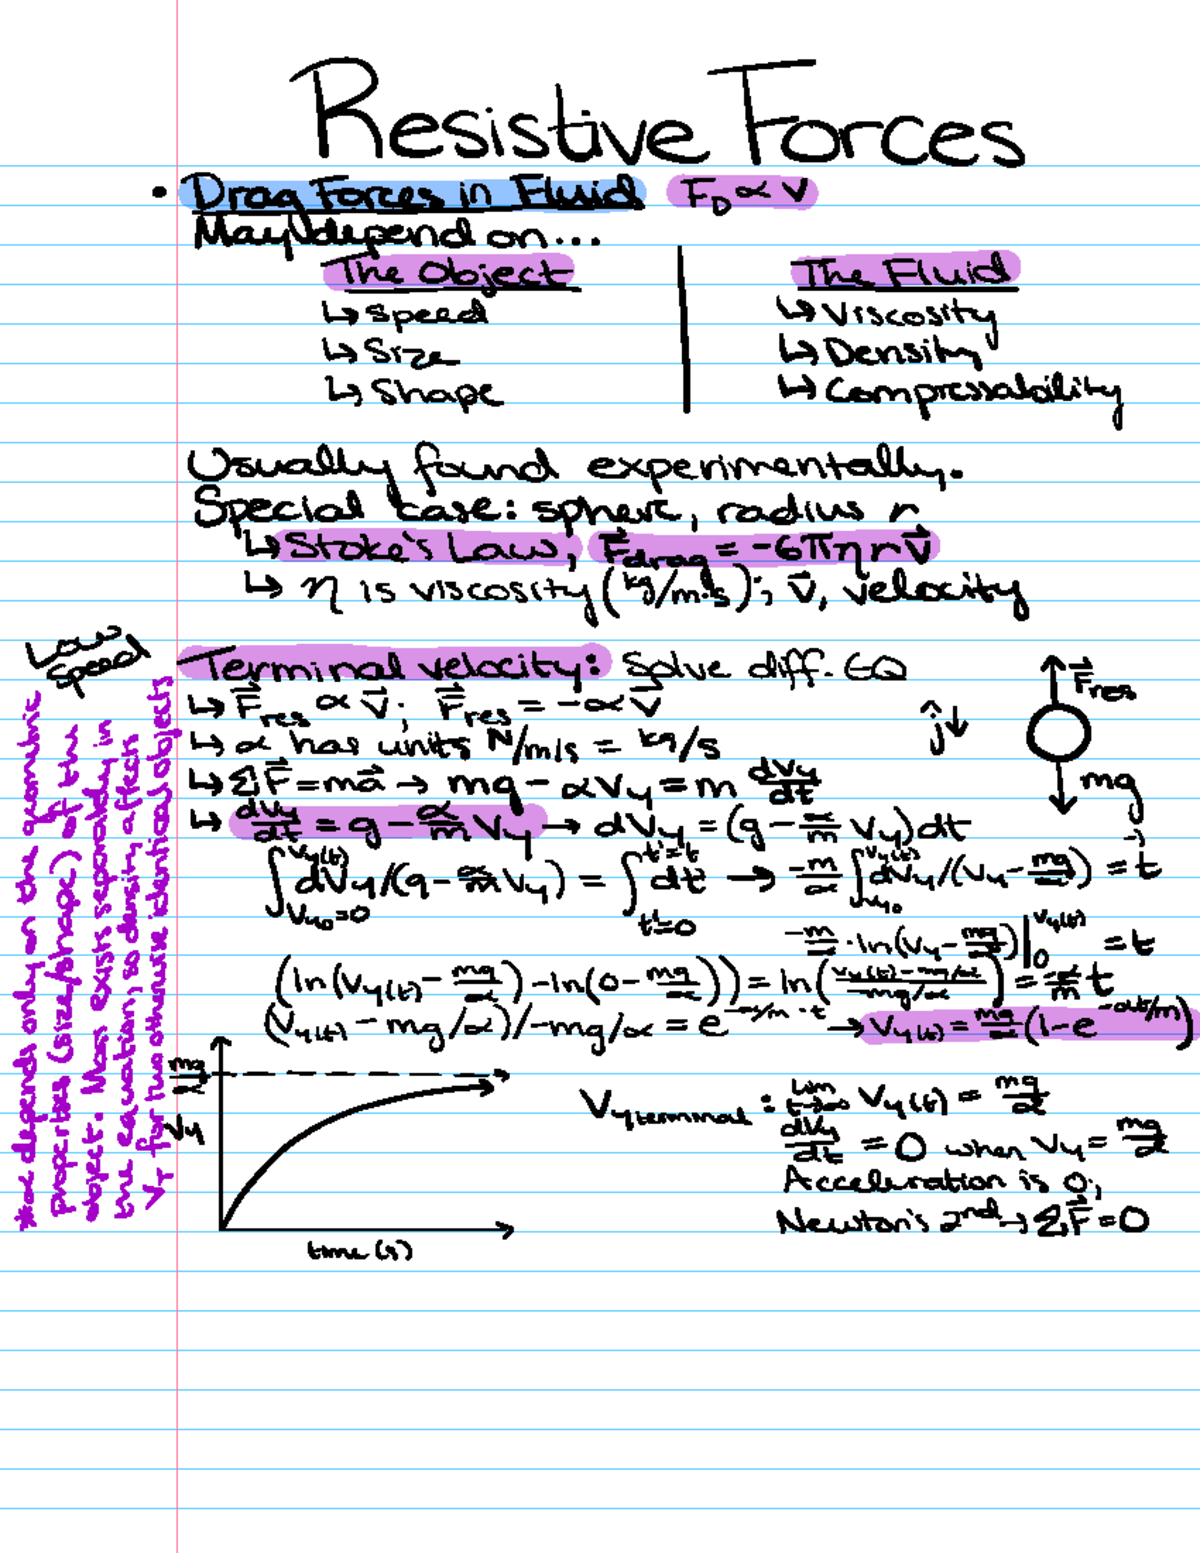 Resistive Forces
• Drag Forces in Fluid F_D ∝ V
May depend on...
The Object
↳ Speed
↳ Size
↳ Shape
The Fluid
↳ Viscosity
↳ Density
↳ Compressability
Usually found experimentally.
Special case: sphere, radius r
↳ Stoke's Law, F⃗_drag = -6πηrv⃗
↳ η is viscosity (kg/m·s); v⃗, velocity
Low Speed
Terminal velocity: Solve diff. EQ
↳ F⃗_res ∝ v⃗; F⃗_res = -αv⃗
↳ α has units N/m/s = kg/s
↳ ΣF⃗ = ma⃗ → mg - αVy = m dVy/dt
↳ dVy/dt = g - α/m Vy → dVy = (g - α/m Vy)dt
F⃗_res
ĵ↓
mg
∫_{Vy₀=0}^{Vy(t)} dVy/(g - α/m Vy) = ∫_{t'=0}^{t'=t} dt' → -m/α ∫_{Vy₀}^{Vy(t)} dVy/(Vy - mg/α) = t
-m/α · ln(Vy - mg/α)|_0^{Vy(t)} = t
(ln(Vy(t) - mg/α) - ln(0 - mg/α)) = ln((Vy(t) - mg/α)/(-mg/α)) = -α/m t
(Vy(t) - mg/α)/-mg/α = e^{-α/m · t} → Vy(t) = mg/α (1 - e^{-αt/m})
mg/α
Vy
time (s)
Vy terminal: lim t→∞ Vy(t) = mg/α
dVy/dt = 0 when Vy = mg/α
Acceleration is 0;
Newton's 2nd → ΣF⃗ = 0
*α depends only on the geometric
properties (size/shape) of the
object. Mass exists separately in
the equation, so density affects
V_T for two otherwise identical objects